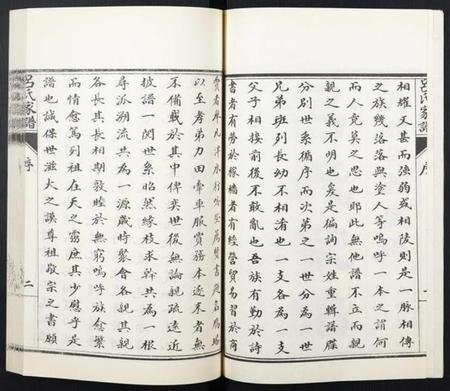 呂氏家譜
序
一
相耀又甚而強弱或相陵則是一脈相傳
之族幾落落無塗人等嗚呼一本之謂何
而人竟莫之思也耶此無他譜不立而親
親之義不明也爰是徧詢宗姓重輯譜牒
分別世系循序而次第之一世分為一世
兄弟班列長幼不相淆也一支各成一支
父子相接前後不敢亂也吾族有勤於詩
書者有勞於稼穡者有經營貿易習於商
賈者
以至孝弟力田牽車服賈務本逐末者無
不備載於其中俾奕世後無論親疏遠近
披譜一閱世系昭然緣枝求幹共為一根
尋派溯流共為一源歲時聚會各親其親
各長其長相期敦睦於無窮嗚呼族愈繁
而情愈篤列祖在天之靈庶其少慰乎是
譜也誠保世滋大之謨尊祖敬宗之書願
呂氏家譜
序
二